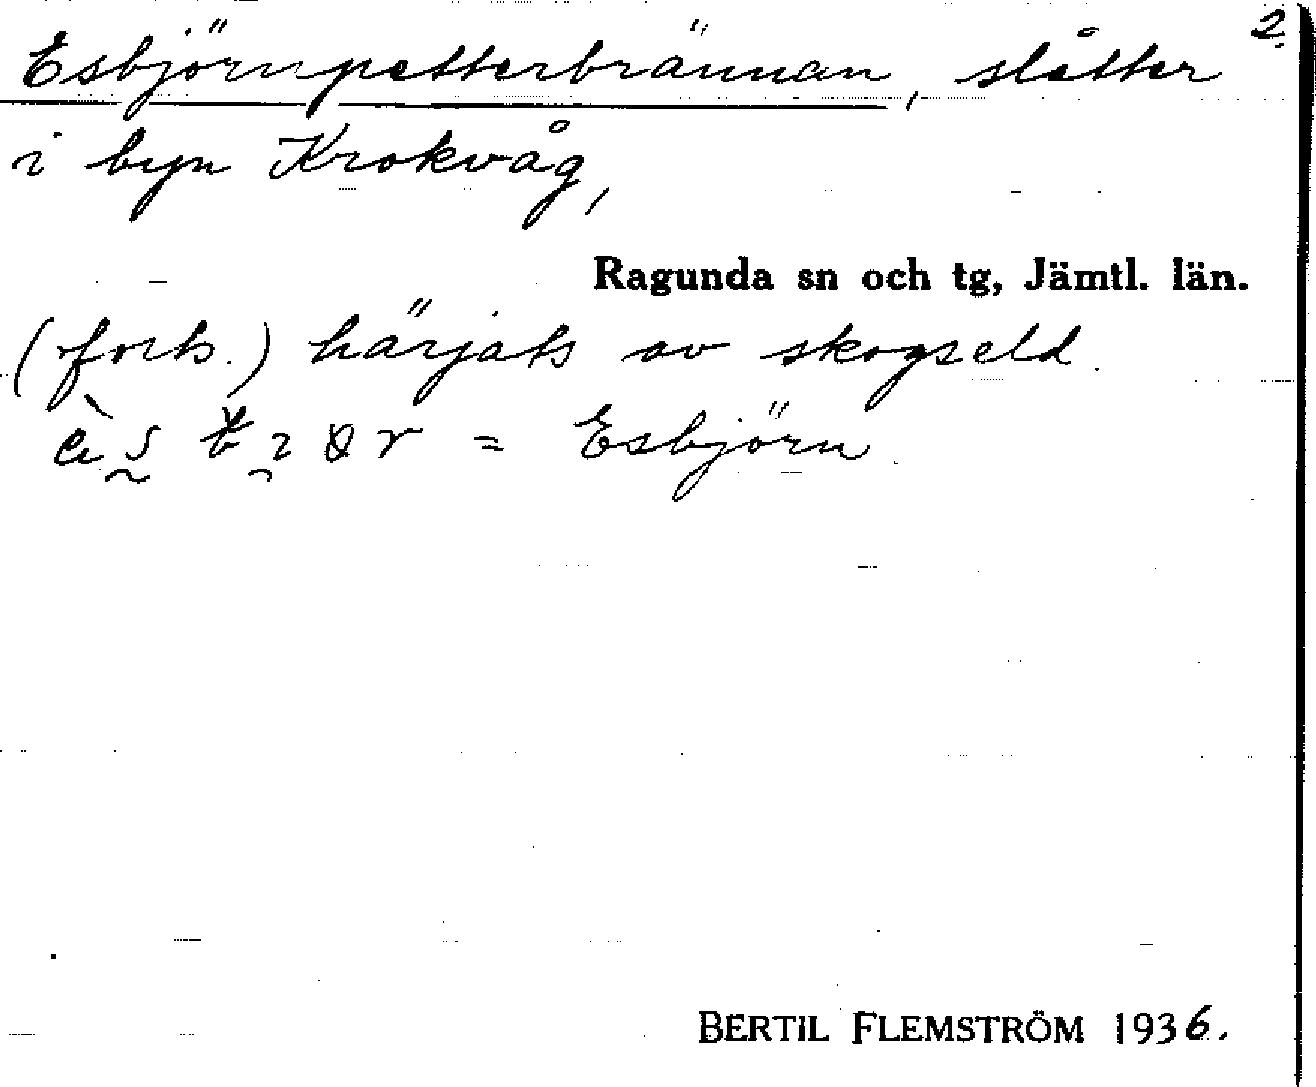 2.
Esbjörnpetterbrännan, slåtter
i byn Krokvåg,
Ragunda sn och tg, Jämtl. län.
(forts.) härjats av skogseld.
= Esbjörn.
BERTIL FLEMSTRÖM 1936.